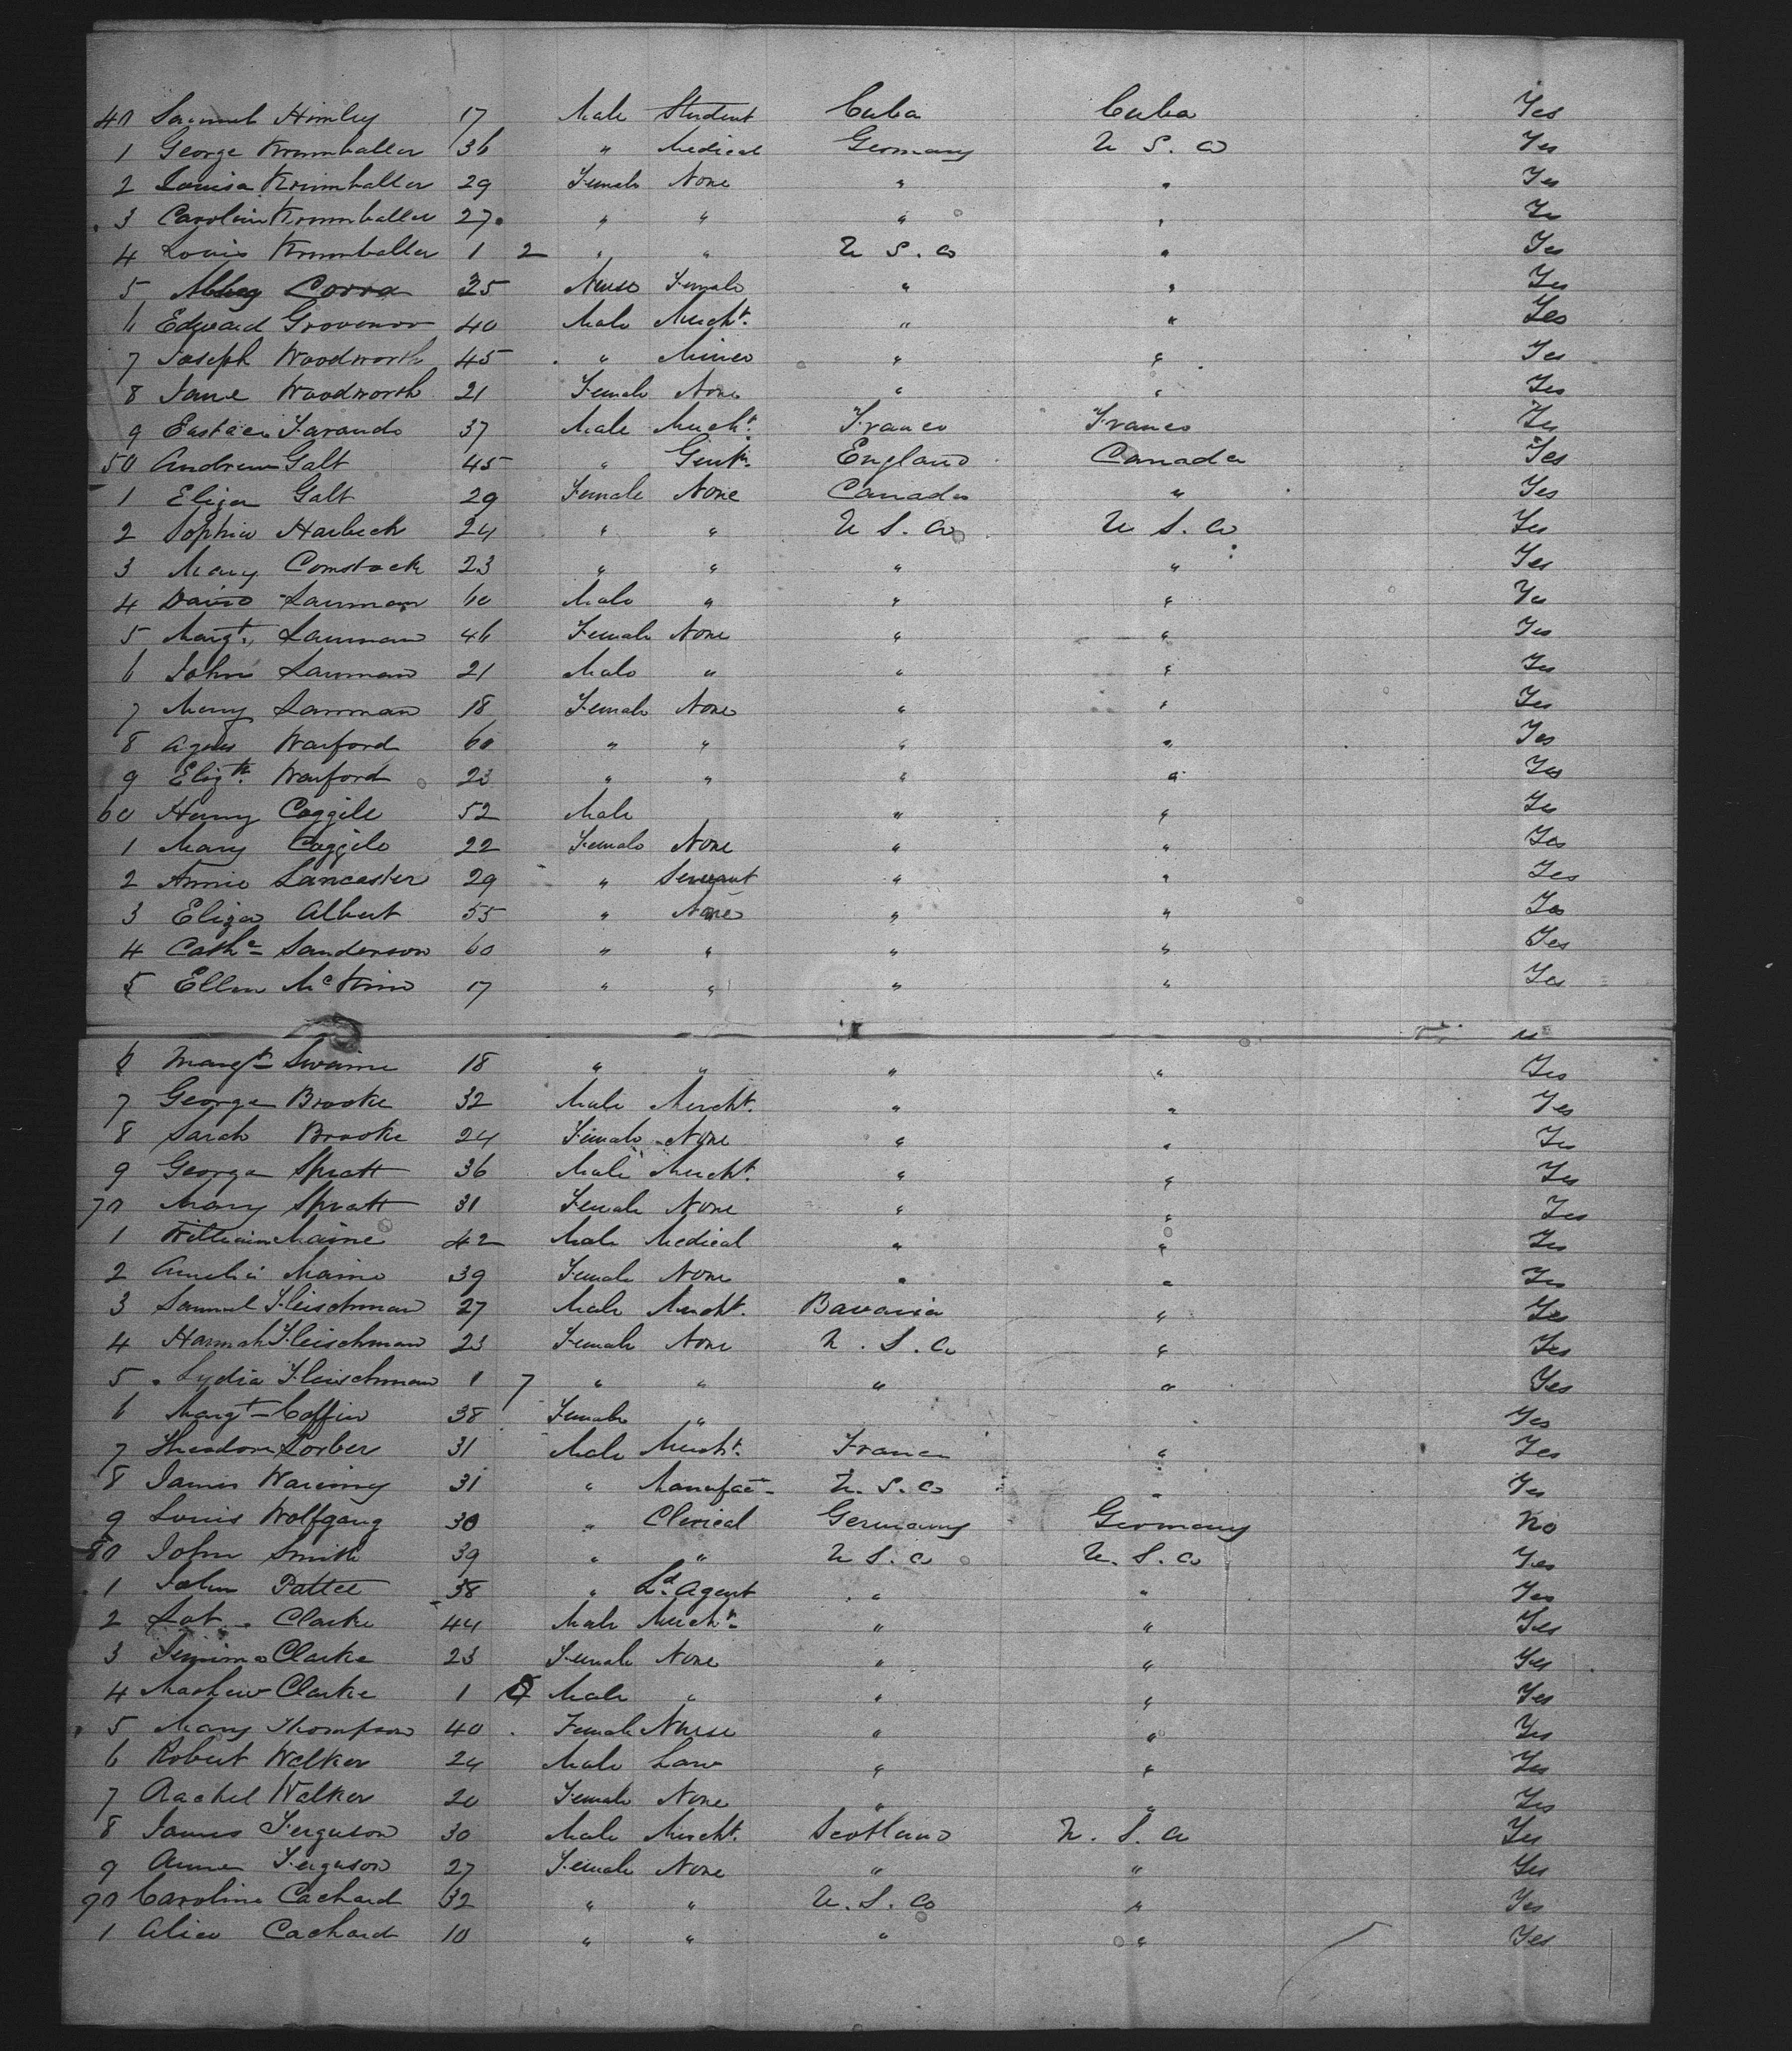 40 Samuel Himley 17 Male Student Cuba Cuba Yes
1 George Krumhaller 36 " Medical Germany U S. a Yes
2 Louisa Krumhaller 29 Female None " " Yes
3 Caroline Krumhaller 27 " " " " Yes
4 Louis Krumhaller 1 2 " " U S. a " Yes
5 Corra 25 Nurse Female " " Yes
6 Edward Grovenor 40 Male Mercht. " " Yes
7 Joseph Woodworth 45 " Miner " " Yes
8 Jane Woodworth 21 Female None " " Yes
9 Farando 37 Male Mercht. France France Yes
50 Andrew Galt 45 " Gentn. England Canada Yes
1 Eliza Galt 29 Female None Canada " Yes
2 Sophia Harbeck 24 " " U S. a U S. a Yes
3 Mary Comstock 23 " " " " Yes
4 David Lanman 60 Male " " " Yes
5 Margt. Lanman 46 Female None " " Yes
6 John Lanman 21 Male " " " Yes
7 Mary Lanman 18 Female None " " Yes
8 Agnes Warford 60 " " " " Yes
9 Elizth. Warford 23 " " " " Yes
60 Henry Coggile 52 Male " " Yes
1 Mary Coggile 22 Female None " " Yes
2 Annie Lancaster 29 " Servant " " Yes
3 Eliza Albert 55 " None " " Yes
4 Cathe Sanderson 60 " " " " Yes
5 Ellen McKim 17 " " " " Yes
6 Margt Swaine 18 " " " " Yes
7 George Brooke 32 Male Mercht. " " Yes
8 Sarah Brooke 24 Female None " " Yes
9 George Spratt 36 Male Mercht. " " Yes
70 Mary Spratt 31 Female None " " Yes
1 William Maine 42 Male Medical " " Yes
2 Amelia Maine 39 Female None " " Yes
3 Samuel Fleischman 27 Male Mercht. Bavaria " Yes
4 Hannah Fleischman 23 Female None U. S. a " Yes
5 Lydia Fleischman 1 7 " " " " Yes
6 Margt Coffin 38 Female " Yes
7 Theodore Lorber 31 Male Mercht. France " Yes
8 James Wareing 31 " Manufac U. S. a " Yes
9 Louis Wolfgang 30 " Clerical Germany Germany No
80 John Smith 39 " " U S. a U. S. a Yes
1 John Pattee 38 " Ld. Agent " " Yes
2 Lot Clarke 44 Male Mercht " " Yes
3 Jemima Clarke 23 Female None " " Yes
4 Mathew Clarke 1 Male " " " Yes
5 Mary Thompson 40 Female Nurse " " Yes
6 Robert Walker 24 Male Law " " Yes
7 Rachel Walker 20 Female None " " Yes
8 James Ferguson 30 Male Mercht. Scotland U. S. a Yes
9 Anne Ferguson 27 Female None " " Yes
90 Caroline Cachard 32 " " U. S. a " Yes
1 Alice Cachard 10 " " " " Yes